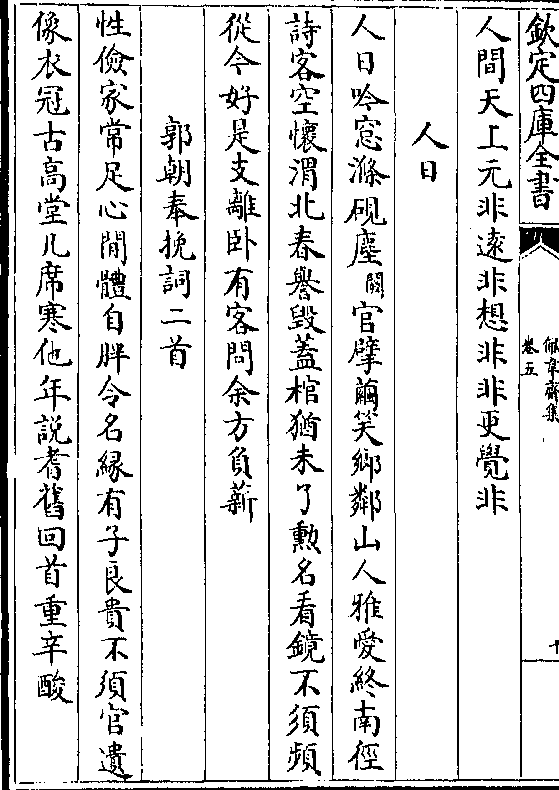 欽定四庫全書
佩韋齋集
卷五
十
人間天上元非遠非想非非更覺非
人日
人日吟窓滌硯塵闕官擘繭笑鄉鄰山人雅愛終南徑
詩客空懷渭北春譽毀蓋棺猶未了勲名看鏡不須頻
從今好是支離卧有客問余方負薪
郭朝奉挽詞二首
性儉家常足心閒體自胖令名緣有子良貴不須官遺
像衣冠古高堂几席寒他年説耆舊回首重辛酸